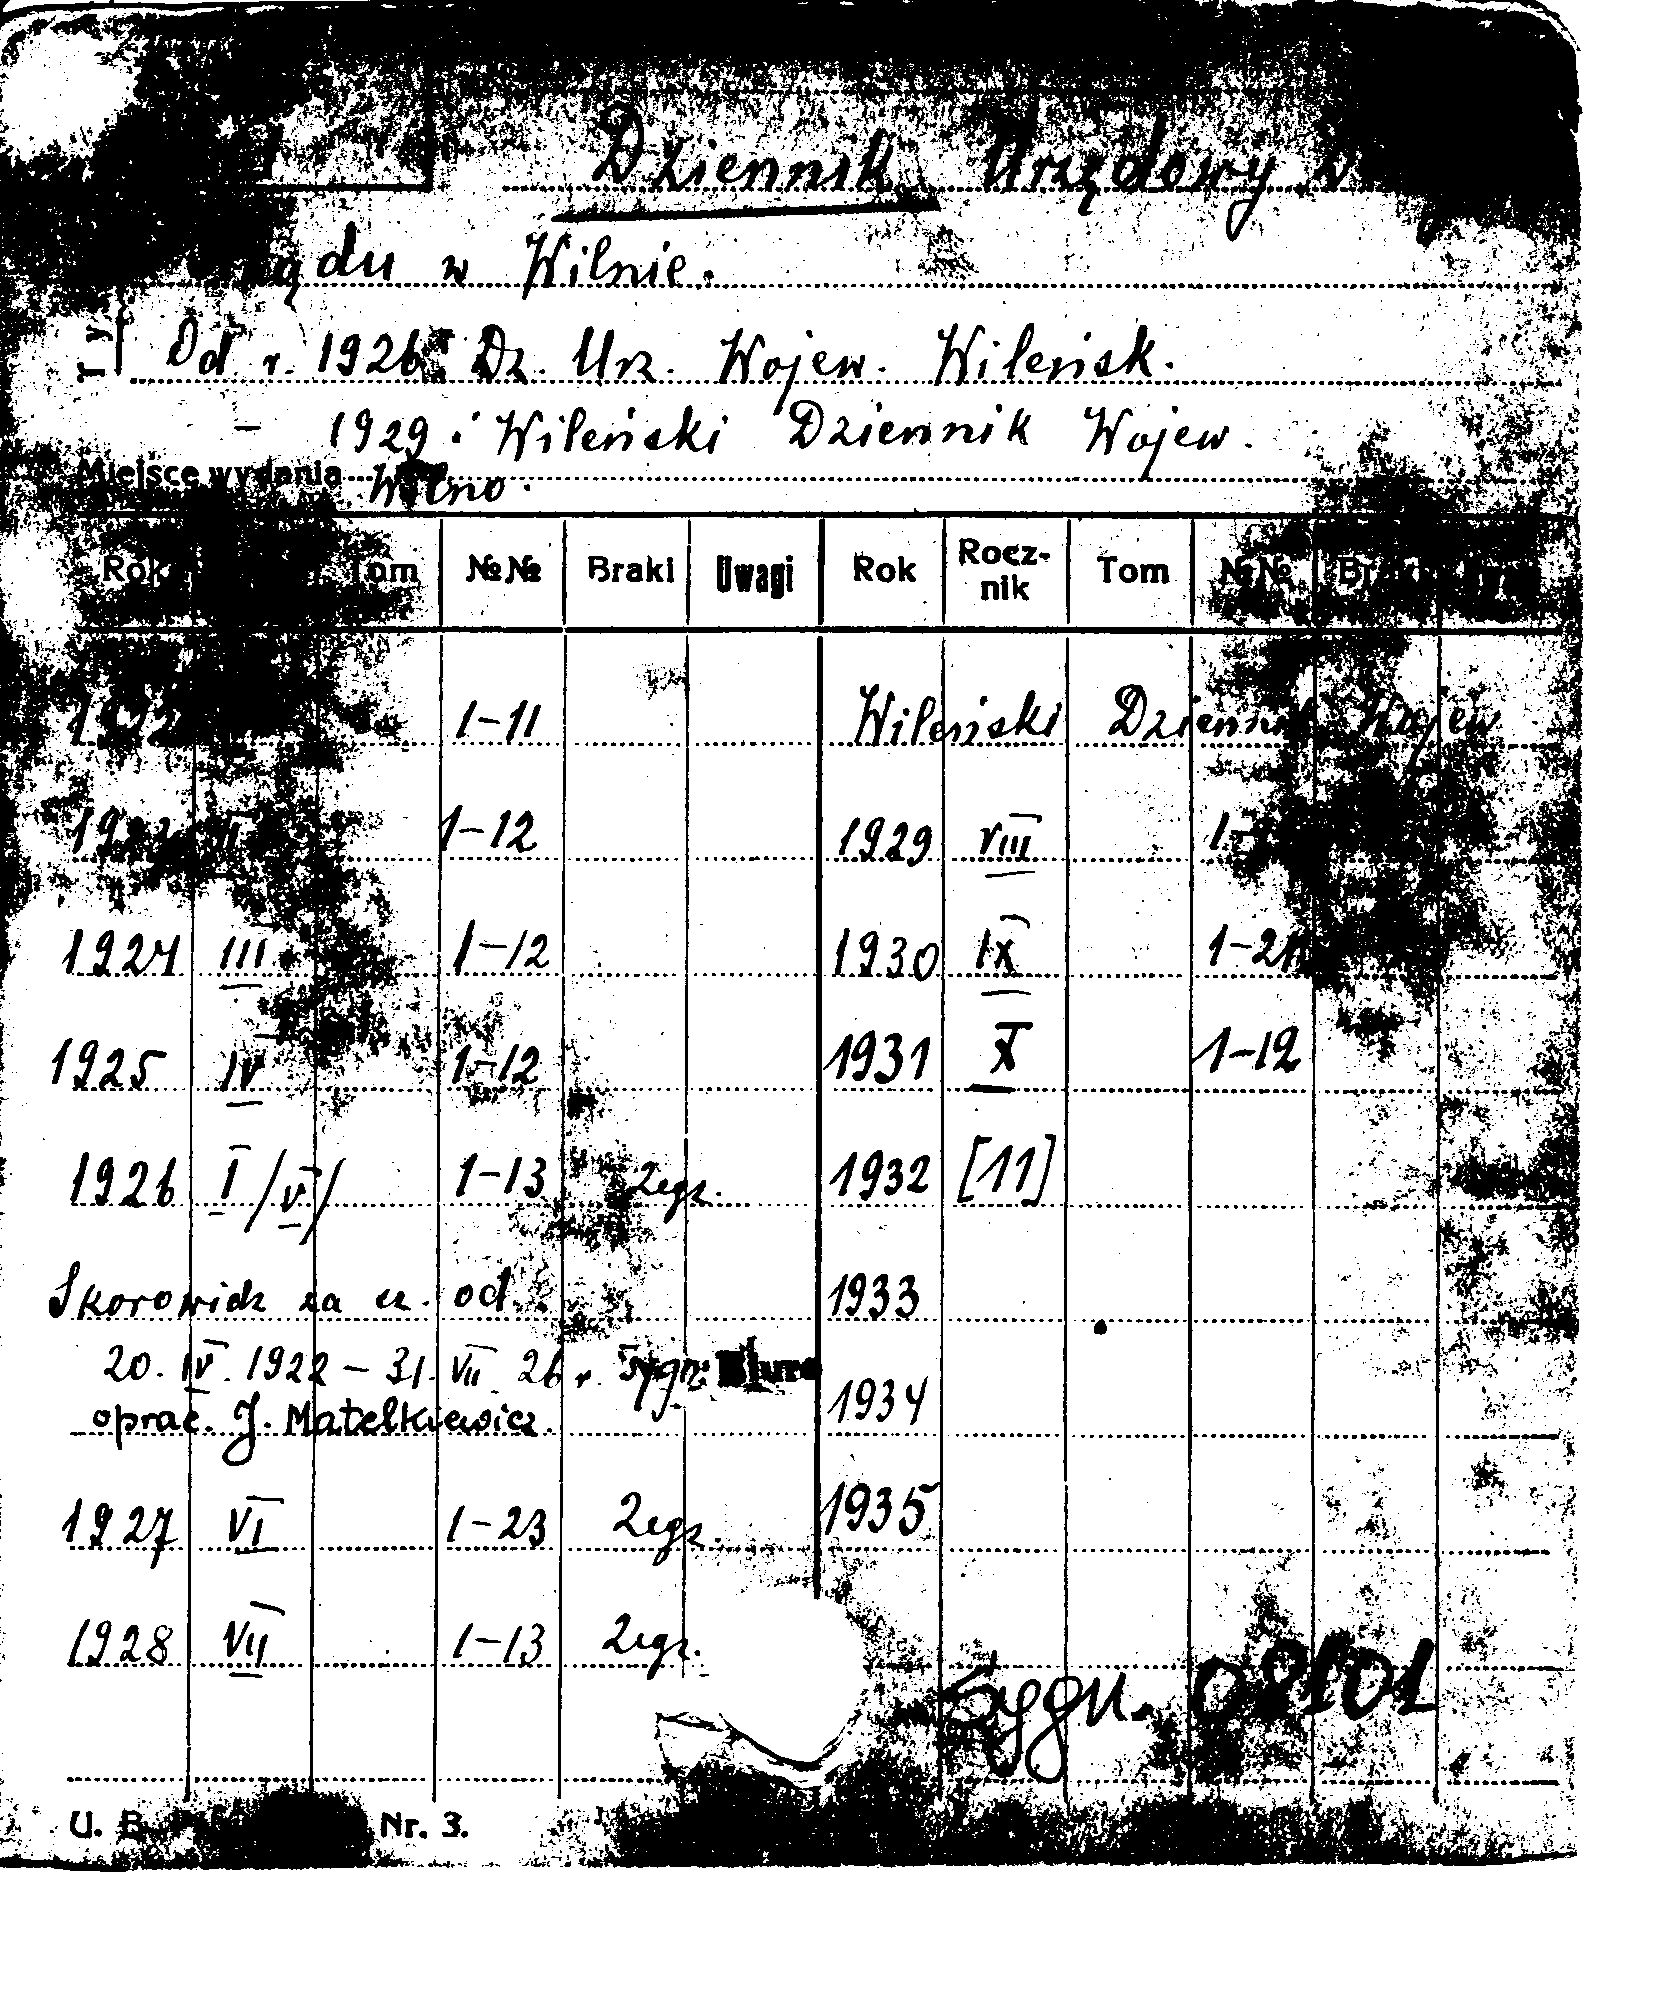 Dziennik Urzędowy
w Wilnie.
Od r. 1926: Dz. Urz. Wojew. Wileńsk.
– 1929: Wileński Dziennik Wojew.
Miejsce wydania Wilno.
Rok Tom №№ Braki Uwagi Rok Rocz-nik Tom №№ Braki
1-11 Wileński Dziennik Wojew
II 1-12 1929 VIII
1924 III 1-12 1930 IX
1925 IV 1-12 1931 X 1-12
1926 I /V/ 1-13 2egz. 1932 [11]
Skorowidz za cz. od 1933
20. IV. 1922 – 31. VII. 26 r. Sygn:
oprac. J. Matelkiewicz. 1934
1927 VI 1-23 2egz. 1935
1928 VII 1-13 2egz.
Sygn. 02101
U. B. Nr. 3.